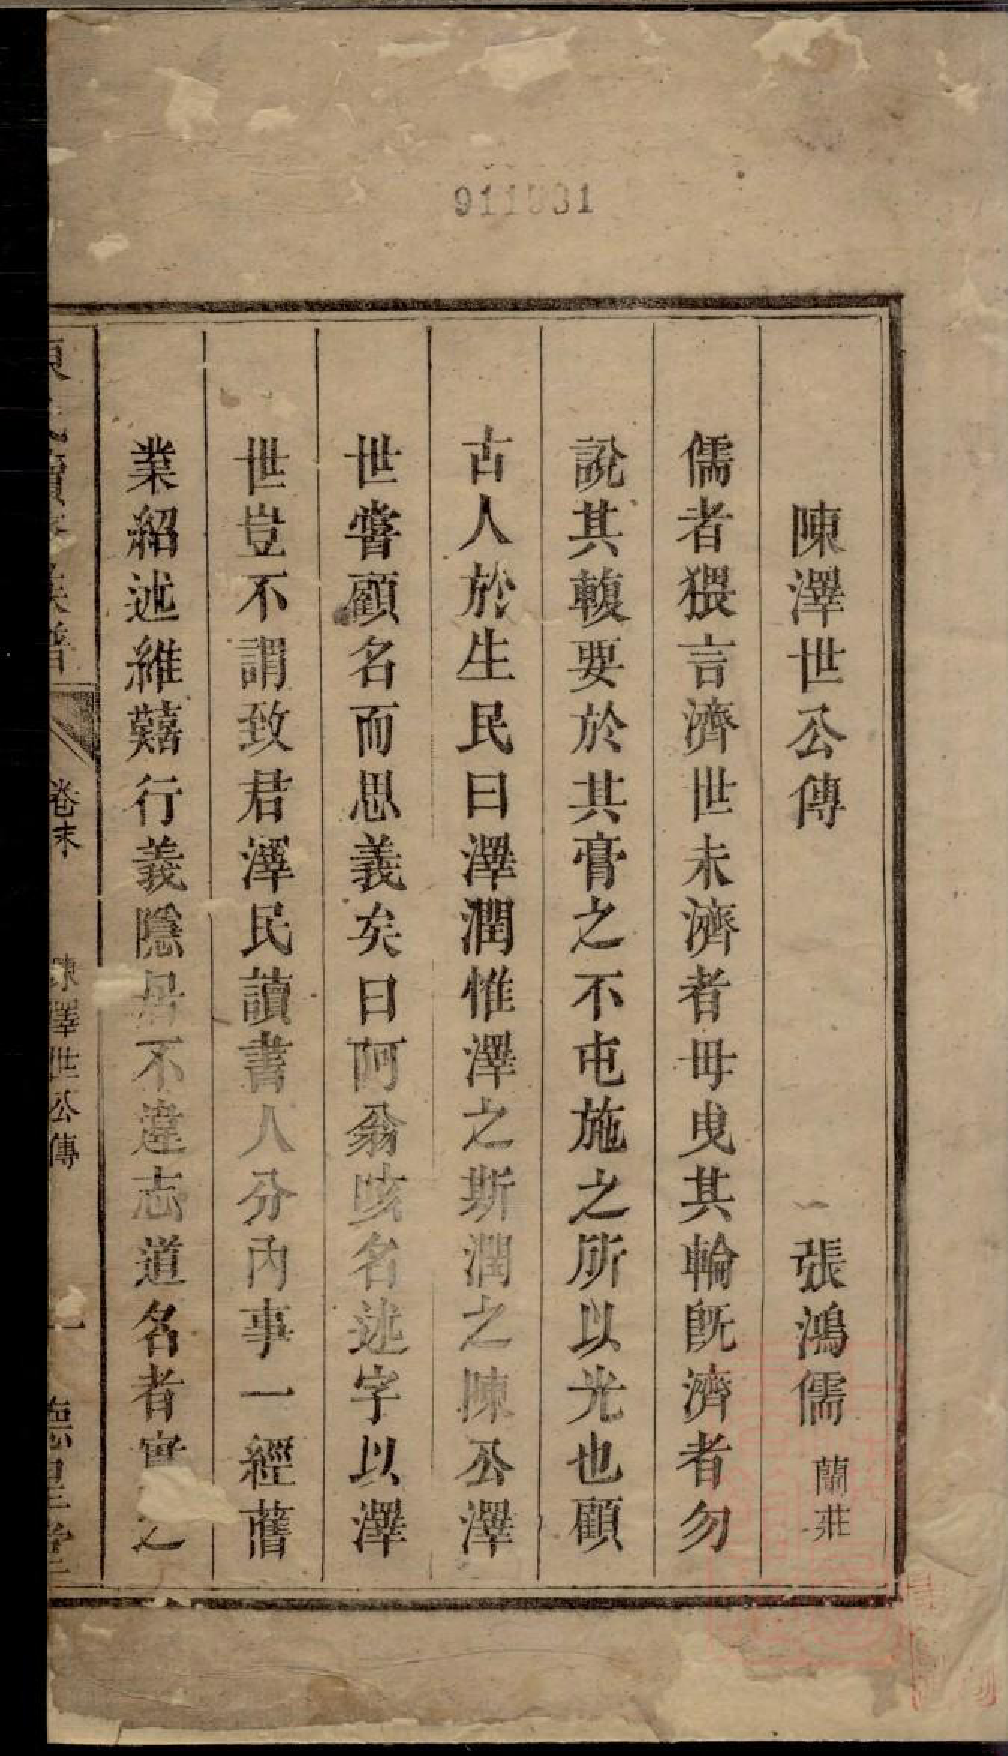 911031
陳澤世公傳
張鴻儒 蘭莊
儒者猥言濟世未濟者毋曳其輪旣濟者勿
說其輹要於其膏之不屯施之所以光也顧
古人於生民曰澤潤惟澤之斯潤之陳公澤
世嘗顧名而思義矣曰阿翁咳名述字以澤
世豈不謂致君澤民讀書人分內事一經舊
業紹述維囏行義隱居不違志道名者實之
卷末
陳澤世公傳
一
德星堂